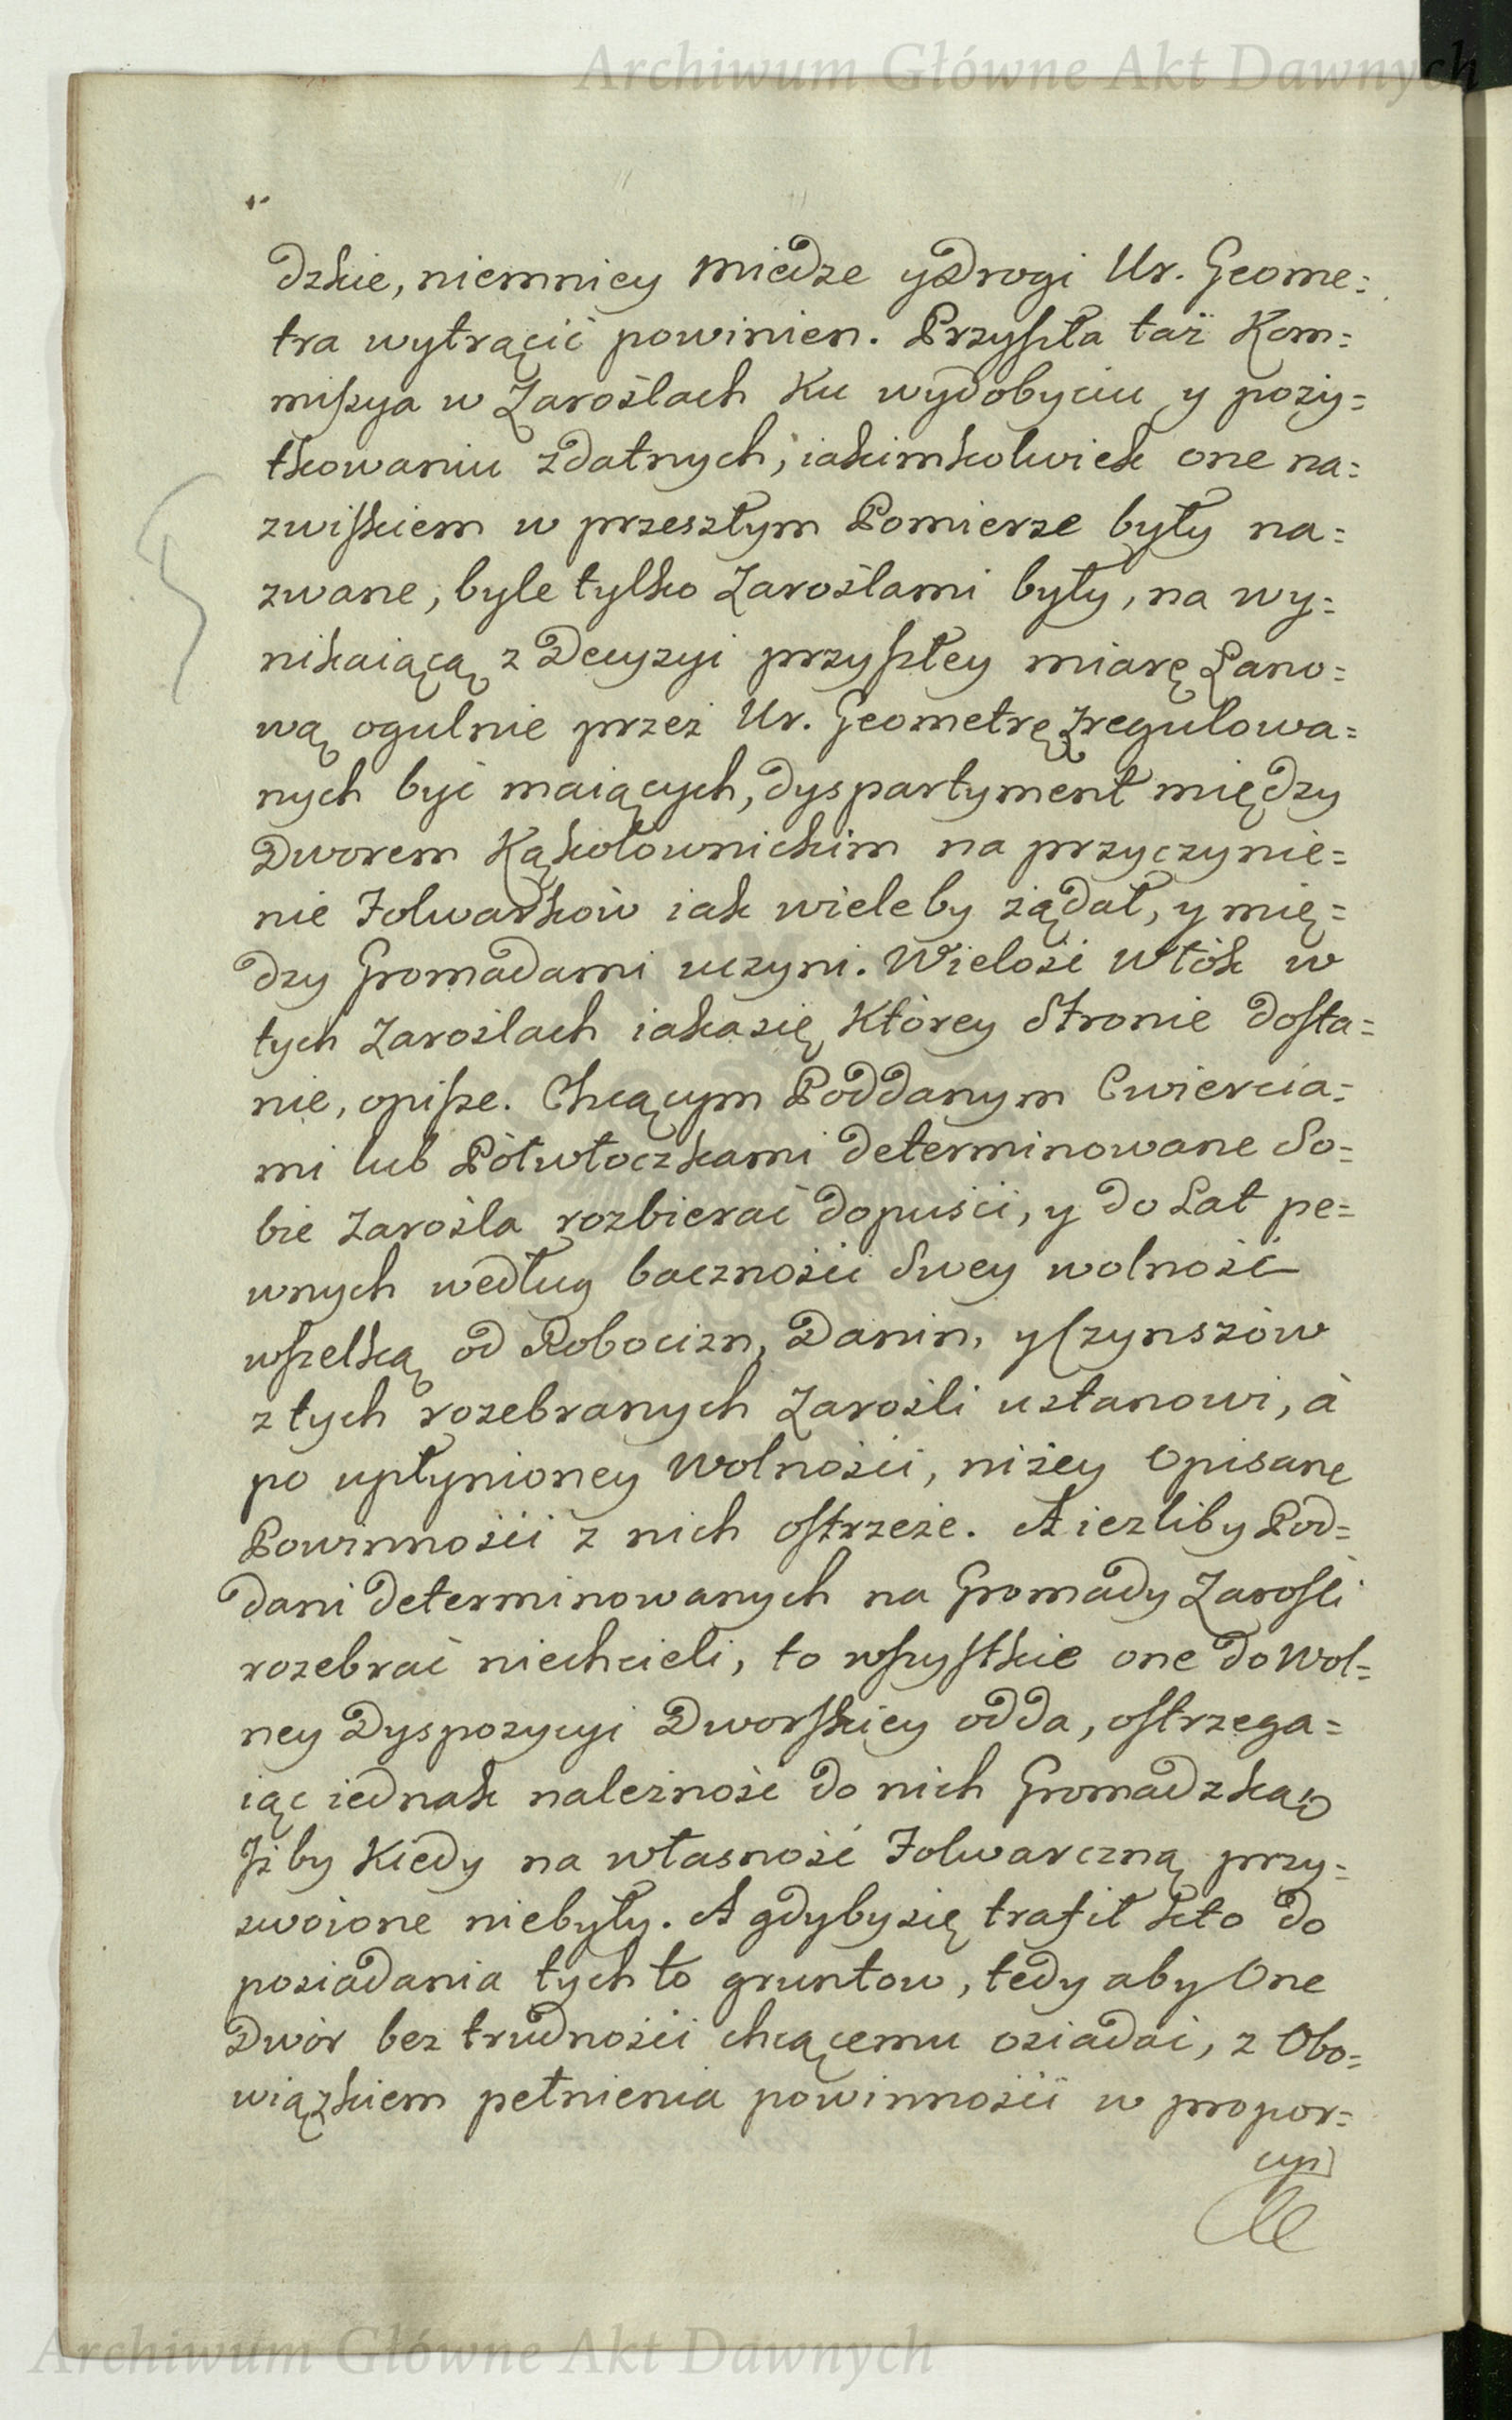 Archiwum Główne Akt Dawnych
dzkie, niemniey miedze y Drogi Ur. Geome=
tra wytrącić powinien. Przyszła taż Kom=
missya w Zaroślach Ku wydobyciu y poży=
tkowaniu zdatnych, iakimkolwiek one na=
zwiskiem w przeszłym Pomierze były na=
zwane, byle tylko Zaroślami były, na wy=
nikaiącą z Decyzyi przyszłey miarę Łano=
wą ogulnie przez Ur. Geometrę zregulowa=
nych być maiących, dyspartyment między
Dworem Kąkolownickim na przyczynie=
nie Folwarków iak wieleby żądał, y mię=
dzy Gromadami uczyni. Wielość Włók w
tych Zaroślach iaka się Którey Stronie dosta=
nie, opisze. Chcącym Poddanym Cwiercia=
mi lub Półwłoczkami determinowane So=
bie Zarośla rozbierać dopuści, y do Lat pe=
wnych według baczności Swey wolność
wszelką od Robocizn, Danin, y Czynszów
z tych rozebranych Zarośli ustanowi, à
po upłynioney Wolności, niżey Opisane
Powinności z nich ostrzeże. A iezliby Pod=
dani determinowanych na Gromady Zarośli
rozebrać niechcieli, to wszystkie one do Wol=
ney Dyspozycyi Dworskiey odda, ostrzega=
iąc iednak należność do nich Gromadzką
Iżby Kiedy na własność Folwarczną przy=
swoione niebyły. A gdyby się trafił kto do
posiadania tych to gruntow, tedy aby One
Dwór bez trudności chcącemu osiadać, z Obo=
wiązkiem pełnienia powinności w propor=
cyi
Archiwum Główne Akt Dawnych